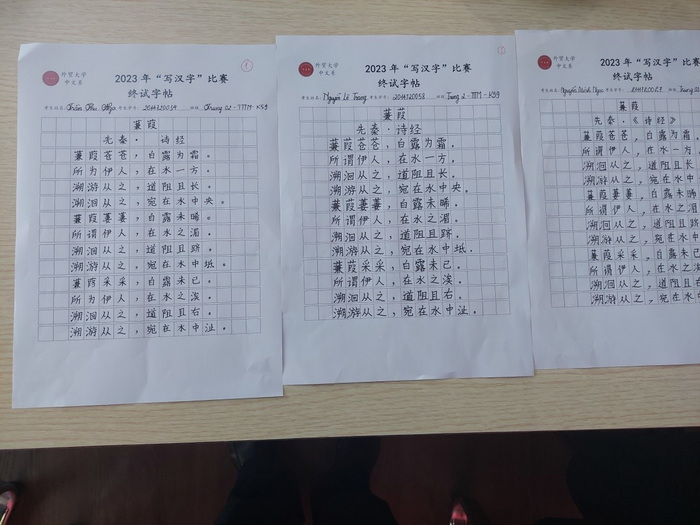 外贸大学
中文系
2023 年“写汉字”比赛
终试字帖
蒹葭
先秦· 诗经
蒹葭苍苍，白露为霜。
所为伊人，在水一方。
溯游从之，道阻且长。
溯洄从之，宛在水中央。
蒹葭萋萋，白露未晞。
所谓伊人，在水之湄。
溯洄从之，道阻且跻。
溯游从之，宛在水中坻。
蒹葭采采，白露未已。
所为伊人，在水之涘。
溯洄从之，道阻且右。
溯游从之，宛在水中沚。
外贸大学
中文系
2023 年“写汉字”比赛
终试字帖
Nguyễn Lê Trang
Trung 2 - TTM - K59
蒹葭
先秦·诗经
蒹葭苍苍，白露为霜。
所谓伊人，在水一方。
溯洄从之，道阻且长。
溯游从之，宛在水中央。
蒹葭萋萋，白露未晞。
所谓伊人，在水之湄。
溯洄从之，道阻且跻。
溯游从之，宛在水中坻。
蒹葭采采，白露未已。
所谓伊人，在水之涘。
溯洄从之，道阻且右。
溯游从之，宛在水中沚。
外贸大学
中文系
2023 年“写汉字”比
终试字帖
蒹葭
先秦·《诗经》
蒹葭苍苍，白露为霜
所谓伊人，在水一方
溯洄从之，道阻且长
溯游从之，宛在水中
蒹葭萋萋，白露未晞
所谓伊人，在水之湄
溯洄从之，道阻且跻
溯游从之，宛在水中
蒹葭采采，白露未已
所谓伊人，在水之涘
溯洄从之，道阻且右
溯游从之，宛在水中